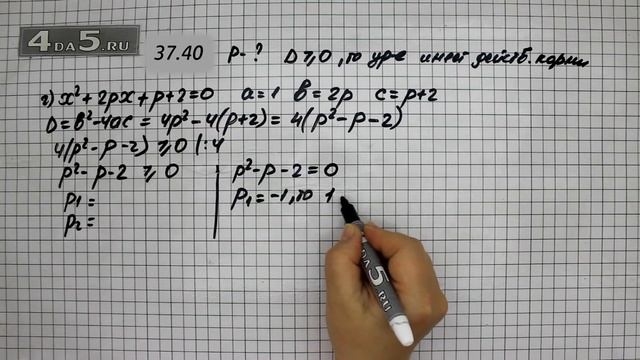 4DA5.RU 37.40 P-? D⩾0, то ур-е имеет действ. корни
г) x²+2px+p+2=0 a=1 b=2p c=p+2
D=b²-4ac = 4p²-4(p+2)=4(p²-p-2)
4(p²-p-2)⩾0 |:4
p²-p-2 ⩾ 0
p₁=
p₂=
p²-p-2=0
p₁=-1, то 1
4DA5.RU